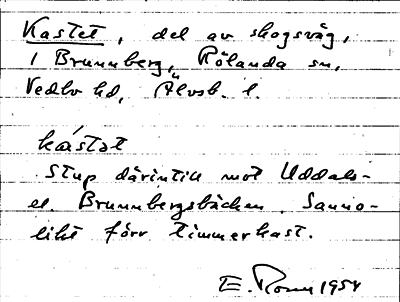 Kastet, del av skogsväg,
i Brunnberg, Rölanda sn,
Vedbo hd, Älvsb. l.
kástat
Stup därintill mot Uddals-
el. Brunnbergsbäcken. Sanno-
likt förr timmerkast.
E. 1954